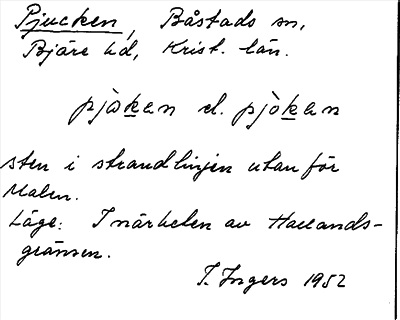 Pjucken, Båstads sn,
Bjäre hd, Krist. län.
pjåkan el. pjòkan
sten i strandlinjen utanför
Malen.
Läge: I närheten av Hallands-
gränsen.
I. Ingers 1952